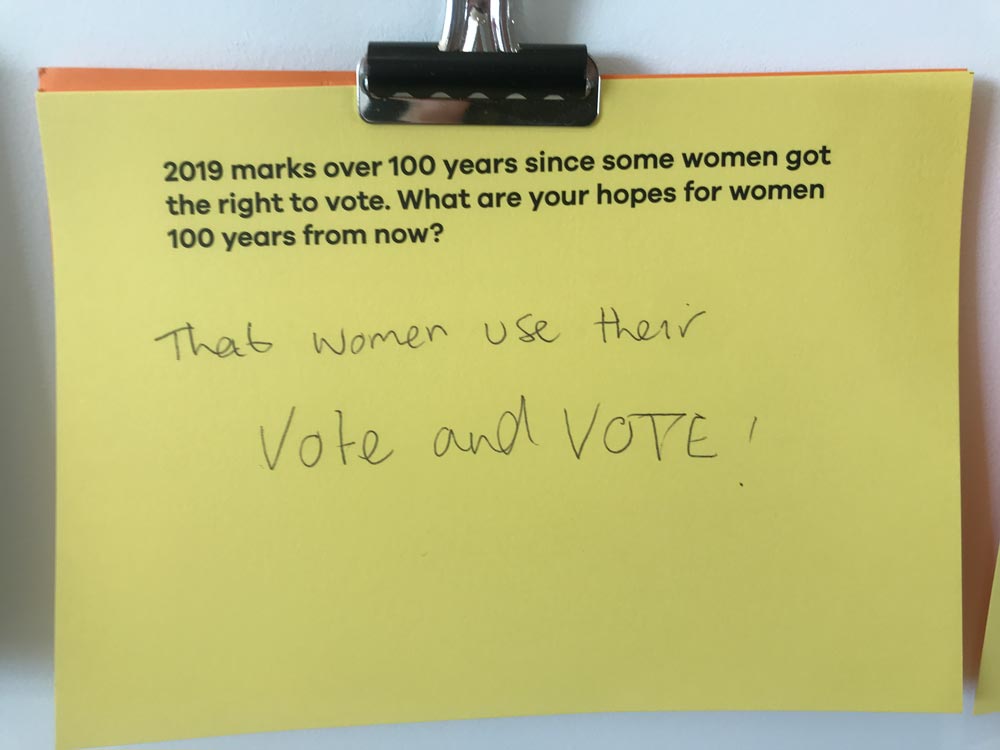 2019 marks over 100 years since some women got
the right to vote. What are your hopes for women
100 years from now?
That women use their
Vote and VOTE!